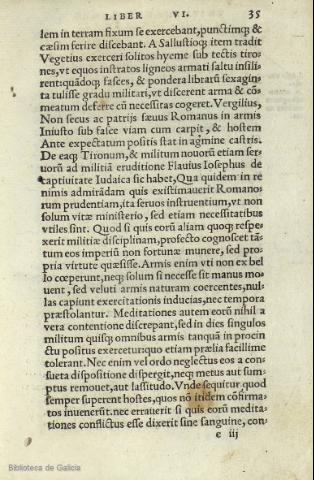 LIBER VI. 35
lem in terram fixum se exercebant, punctimq; &
cæsim ferire discebant. A Sallustioq; item tradit
Vegetius exerceri solitos hyeme sub tectis tiro-
nes, vt equos instratos ligneos armati saltu insili-
rent: quádoq; fasces, & pondera librarũ sexagin-
ta tulisse gradu militari, vt discerent arma & cõ-
meatum deferre cũ necessitas cogeret. Vergilius,
Non secus ac patrijs sæuus Romanus in armis
Iniusto sub fasce viam cum carpit, & hostem
Ante expectatum positis stat in agmine castris.
De eaq; Tironum, & militum nouorũ etiam ser-
uorũ ad militiã eruditione Flauius Iosephus de
captiuitate Iudaica sic habet, Qua quidem in re
nimis admirãdam quis existimauerit Romano-
rum prudentiam, ita seruos instruentium, vt non
solum vitæ ministerio, sed etiam necessitatibus
vtiles sint. Quod si quis eorũ aliam quoq; respe-
xerit militiæ disciplinam, profecto cognoscet tã-
tum eos imperiũ non fortunæ munere, sed pro-
pria virtute quæsisse. Armis enim vti non ex bel
lo cœperunt, neq; solum si necesse sit manus mo-
uent, sed veluti armis naturam coercentes, nul-
las capiunt exercitationis inducias, nec tempora
præstolantur. Meditationes autem eorũ nihil a
vera contentione discrepant, sed in dies singulos
militum quisq; omnibus armis tanquã in procin
ctu positus exercetur: quo etiam prælia facillime
tolerant. Nec enim vel ordo neglectus eos a con-
sueta dispositione dispergit, neq; metus aut sum-
ptus remouet, aut lassitudo. Vnde sequitur quod
semper superent hostes, quos nõ itidem cõfirma-
tos inuenerũt. nec errauerit si quis eorũ medita-
tiones conflictus esse dixerit sine sanguine, con-
e iij
Biblioteca de Galicia